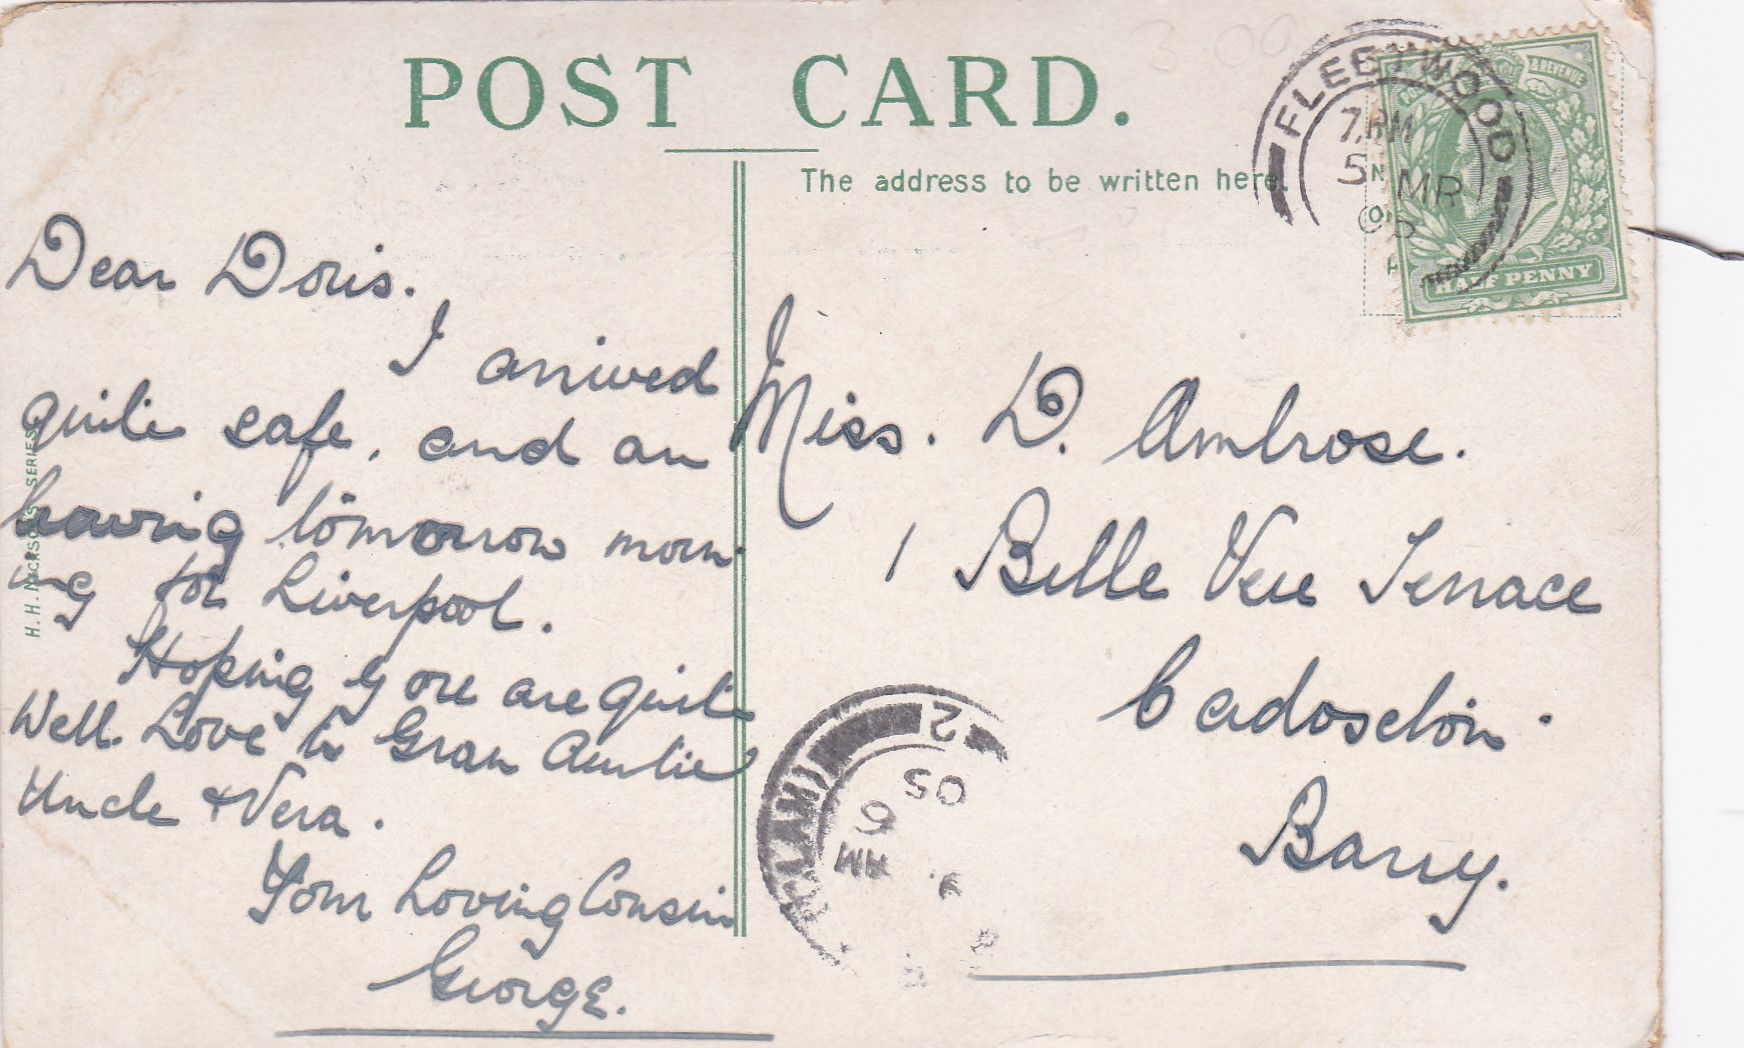 POST CARD.
The address to be written here.
FLEETWOOD
7. PM
5 MR
05
& REVENUE
HALF PENNY
Dear Doris.
I arrived
quite safe, and am
leaving tomorrow morn-
ing for Liverpool.
Hoping you are quite
Well. Love to Gran Auntie
Uncle & Vera.
Your Loving Cousin
George.
Miss. D. Ambrose.
1 Belle Vere Terrace
Cadoxton.
Barry.
H. H. SERIES
AM
6
05
2
3.00